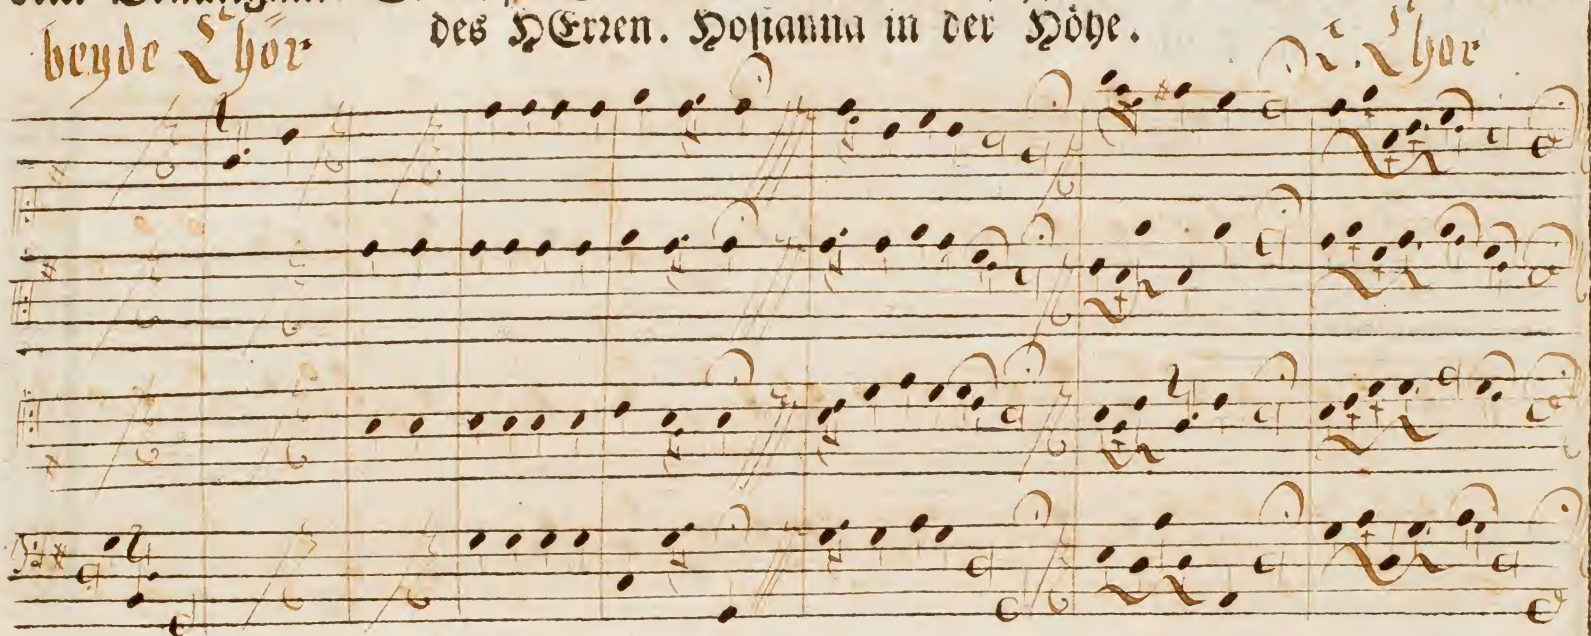 des HErren. Hosianna in der Höhe.
beyde Chör
Chor